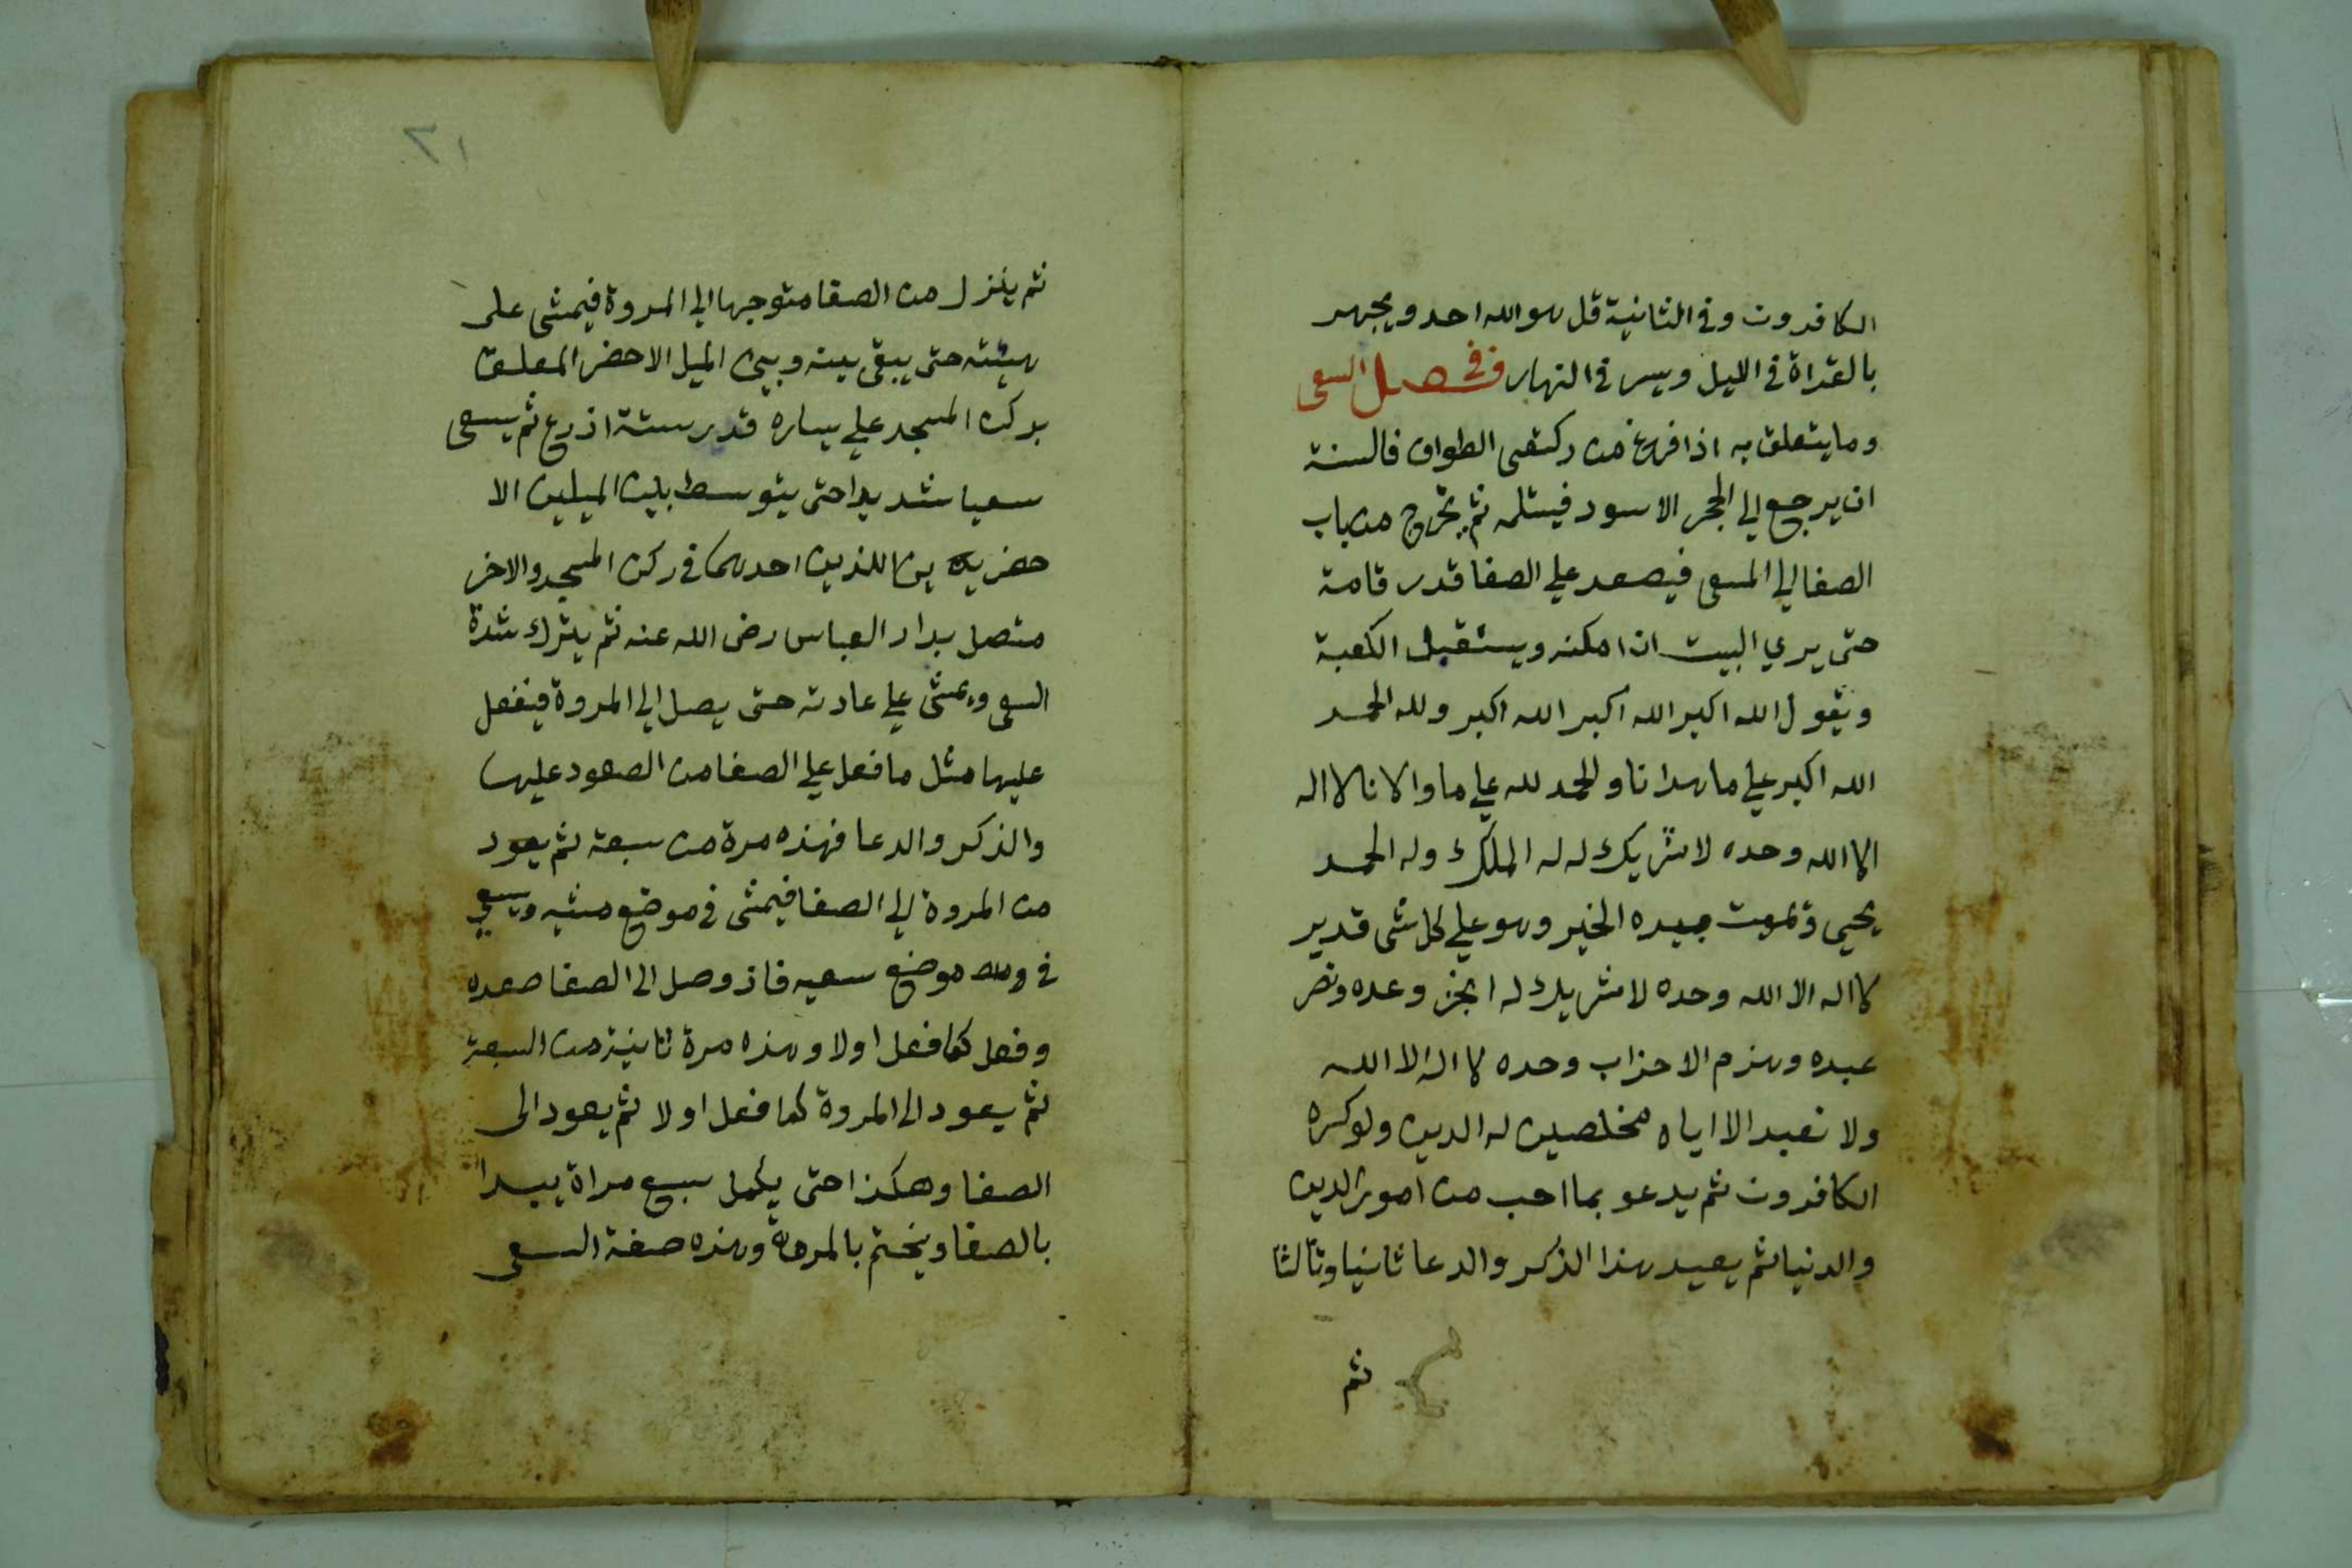 الكافرون وفي الثانية قل هو الله احد ويجهر
بالقراة في الليل ويسر في النهار فصل في السعى
وما يتعلق به اذا فرغ من ركعتى الطواف فالسنة
ان يرجع الي الحجر الاسود فيستلمه ثم يخرج من باب
الصفا الي المسعى فيصعد علي الصفا قدر قامة
حتى يري البيت ان امكنه ويستقبل الكعبة
ويقول الله اكبر الله اكبر الله اكبر ولله الحمد
الله اكبر علي ما هدانا والحمد لله علي ما اولانا لا اله
الا الله وحده لا شريك له له الملك وله الحمد
يحيى ويميت بيده الخير وهو علي كل شى قدير
لا اله الا الله وحده لا شريك له انجز وعده ونصر
عبده وهزم الاحزاب وحده لا اله الا الله
ولا نعبد الا اياه مخلصين له الدين ولو كره
الكافرون ثم يدعو بما احب من امور الدين
والدنيا ثم يعيد هذا الذكر والدعا ثانيا وثالثا
ثم
٢١
ثم ينزل من الصفا متوجها الي المروة فيمشى على
هيئته حتى يبقى بينه وبين الميل الاخضر المعلق
بركن المسجد علي يساره قدر ستة اذرع ثم يسعى
سعيا شديدا حتى يتوسط بين الميلين الا
خضرين اللذين احدهما في ركن المسجد والاخر
متصل بدار العباس رضى الله عنه ثم يترك شدة
السعى ويمشى علي عادته حتى يصل الي المروة فيفعل
عليها مثل ما فعل علي الصفا من الصعود عليها
والذكر والدعا فهذه مرة من سبعة ثم يعود
من المروة الي الصفا فيمشى في موضع مشيه ويسعي
في موضع سعيه فاذ وصل الى الصفا صعده
وفعل كما فعل اولا وهذه مرة ثانية من السبعة
ثم يعود الى المروة كما فعل اولا ثم يعود الى
الصفا وهكذا حتى يكمل سبع مراة يبدا
بالصفا ويختم بالمروة وهذه صفة السعى